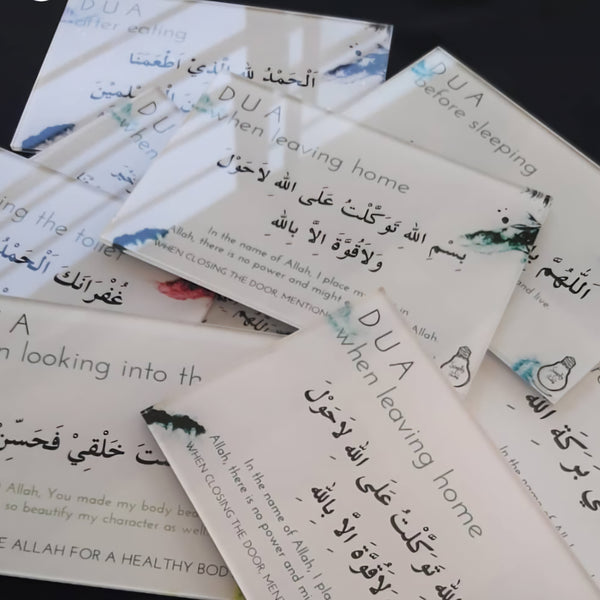 DUA
after eating
اَلْحَمْدُ لِلّٰهِ الَّذِيْ اَطْعَمَنَا
DUA
when leaving home
بِسْمِ اللهِ تَوَكَّلْتُ عَلَى اللهِ لَاحَوْلَ
وَلَاقُوَّةَ اِلَّا بِاللهِ
In the name of Allah, I place m in
Allah, there is no power and might Allah
WHEN CLOSING THE DOOR, MENTION
DUA
Before sleeping
اَللّٰهُمَّ
and live
DU
when
ing the toilet
غُفْرَانَكَ اَلْحَمْدُ
اللّٰهُمَّ
U A
n looking into th
خَلْقِيْ فَحَسِّنْ
Allah, You made my body bea
so beautify my character as well
E ALLAH FOR A HEALTHY BOD
DUA
When leaving home
اللهِ تَوَكَّلْتُ عَلَى اللهِ لَاحَوْلَ
لَاقُوَّةَ اِلَّا بِاللهِ
In the name of Allah, I pla
Allah, there is no power and mi
WHEN CLOSING THE DOOR, MEN
بَرَكَةِ اللهِ
In the name of A